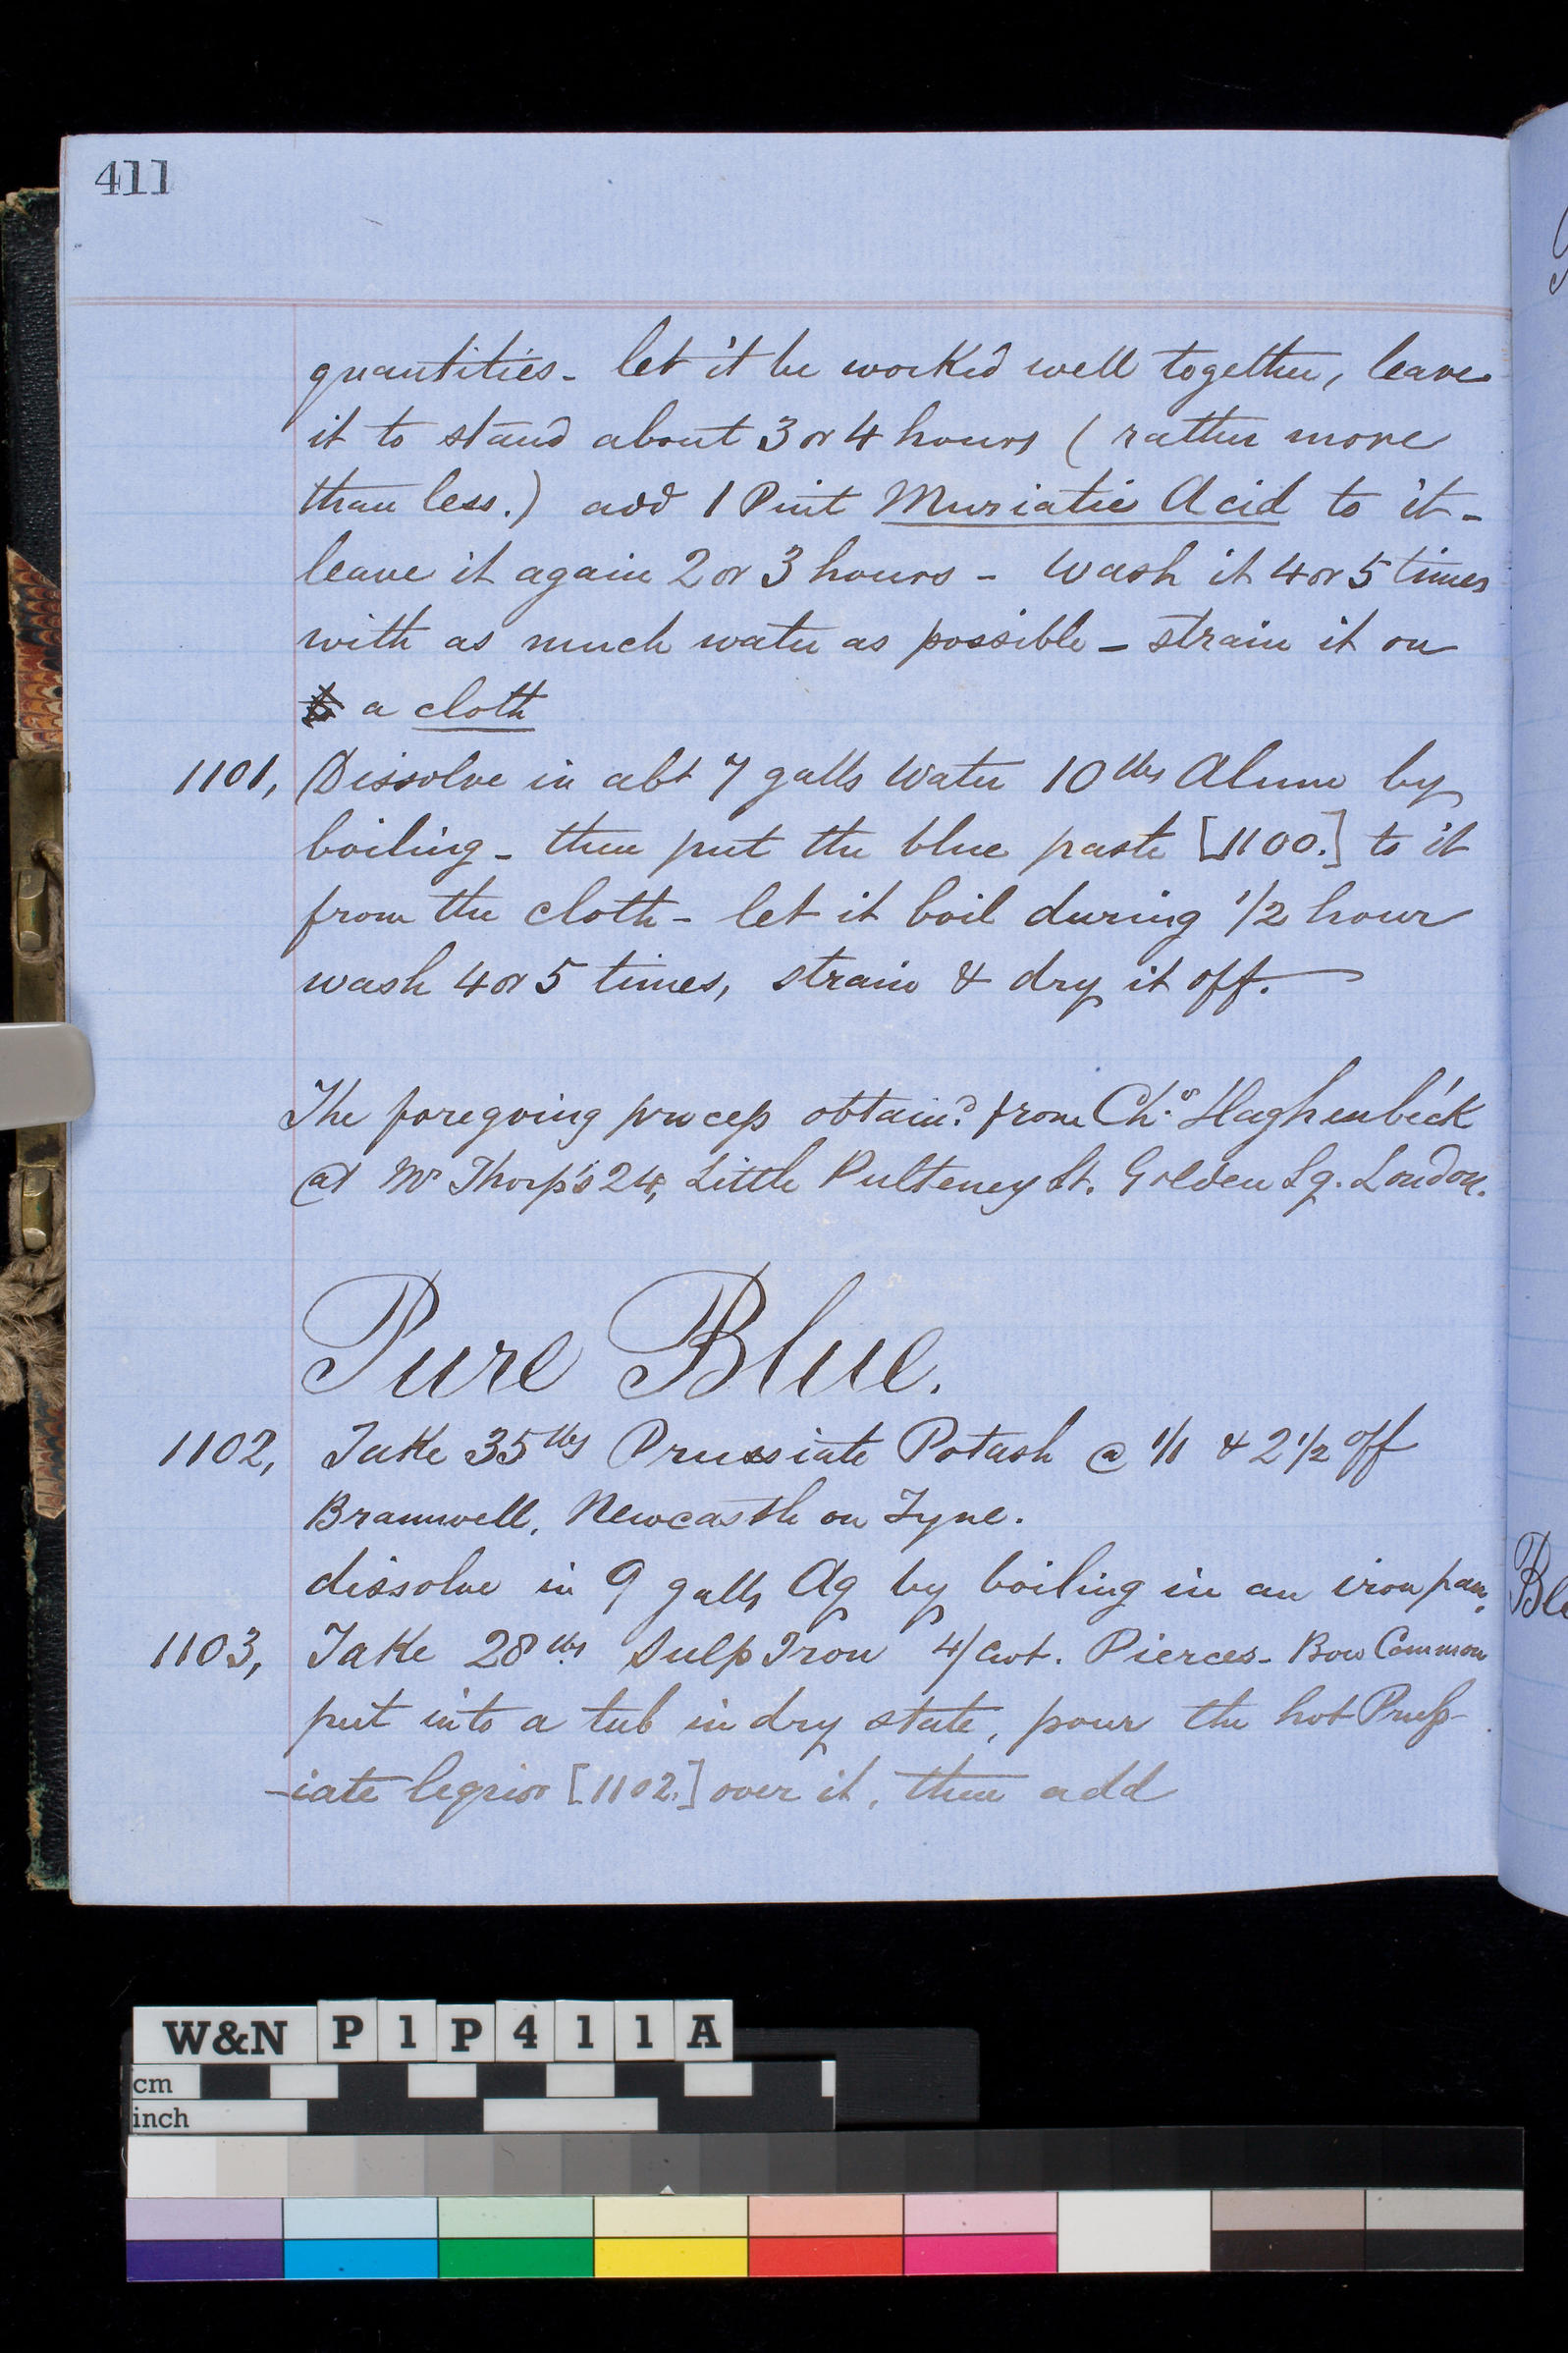 411
quantities - let it be worked well together, leave
it to stand about 3 or 4 hours ( rather more
than less.) add 1 Pint Muriatic Acid to it -
leave it again 2 or 3 hours - wash it 4 or 5 times
with as much water as possible - strain it on
a cloth
1101, Dissolve in abt 7 galls Water 10 lbs Alum by
boiling - then put the blue paste [1100.] to it
from the cloth - let it boil during 1/2 hour
wash 4 or 5 times, strain & dry it off.
The foregoing process obtaind. from Chs. Haghenbeck
at Mr Thorp's 24, Little Pulteney St. Golden Sq. London.
Pure Blue.
1102, Take 35 lbs Prussiate Potash @ 1/1 & 2 1/2 off
Bramwell, Newcastle on Tyne.
dissolve in 9 galls Aq by boiling in an iron pan.
1103, Take 28 lbs Sulp Iron 4/ cwt. Pierces - Bow Common
put into a tub in dry state, pour the hot Pruss-
-iate liquor [1102.] over it, then add
W&N P1P411A
cm
inch